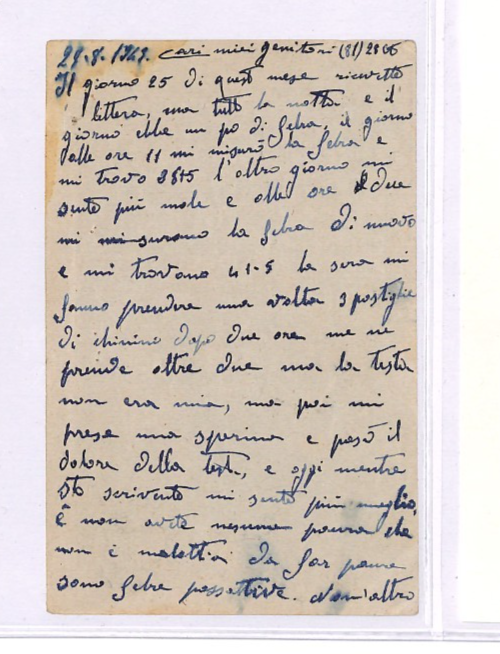 cari miei genitori
Il giorno 25 di questo mese ricevetto
littera, ma tutto la notta e il
giorno ebbe un po di febra, il giorno
alle ore 11 mi misurò la febra e
mi trovo l'altro giorno mi
sento più male e alle ore due
mi misurano la febra di nuovo
e mi trovano 41-5 la sera mi
fanno prendere una volta 3 postiglie
di chinino dopo due ore me ne
prende altre due ma la testa
non era mia, ma poi mi
prese una sperina e pasò il
dolore della testa, e oggi mentre
sto scrivento mi sento più meglio,
E non avete nesuna paura che
non è malattia da far paura
sono febra